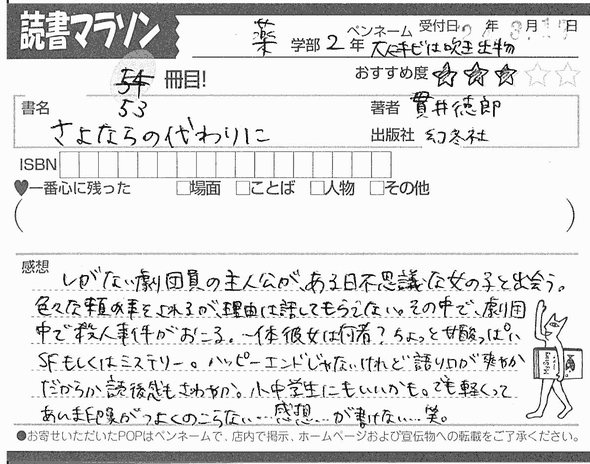 読書マラソン
薬 学部 2年 ペンネーム 大好ビは吹き出物 受付日 年 3月17日
54 冊目! おすすめ度 ★★★☆☆
53
書名 さよならの代わりに 著者 貫井徳郎
出版社 幻冬社
ISBN
♥一番心に残った □場面 □ことば □人物 □その他
( )
感想
しがない劇団員の主人公が、ある日不思議な女の子と出会う。
色々な頼み事をされるが、理由は話してもらえない。その中で、劇団
中で殺人事件がおこる。一体彼女は何者?ちょっと甘酸っぱい
SFもしくはミステリー。ハッピーエンドじゃないけれど語り口が爽やか
だからか読後感もさわやか。小中学生にもいいかも。でも軽くって
あんま印象がつよくのこらない…感想…が書けない…笑。
●お寄せいただいたPOPはペンネームで、店内で掲示、ホームページおよび宣伝物への転載をご了承ください。